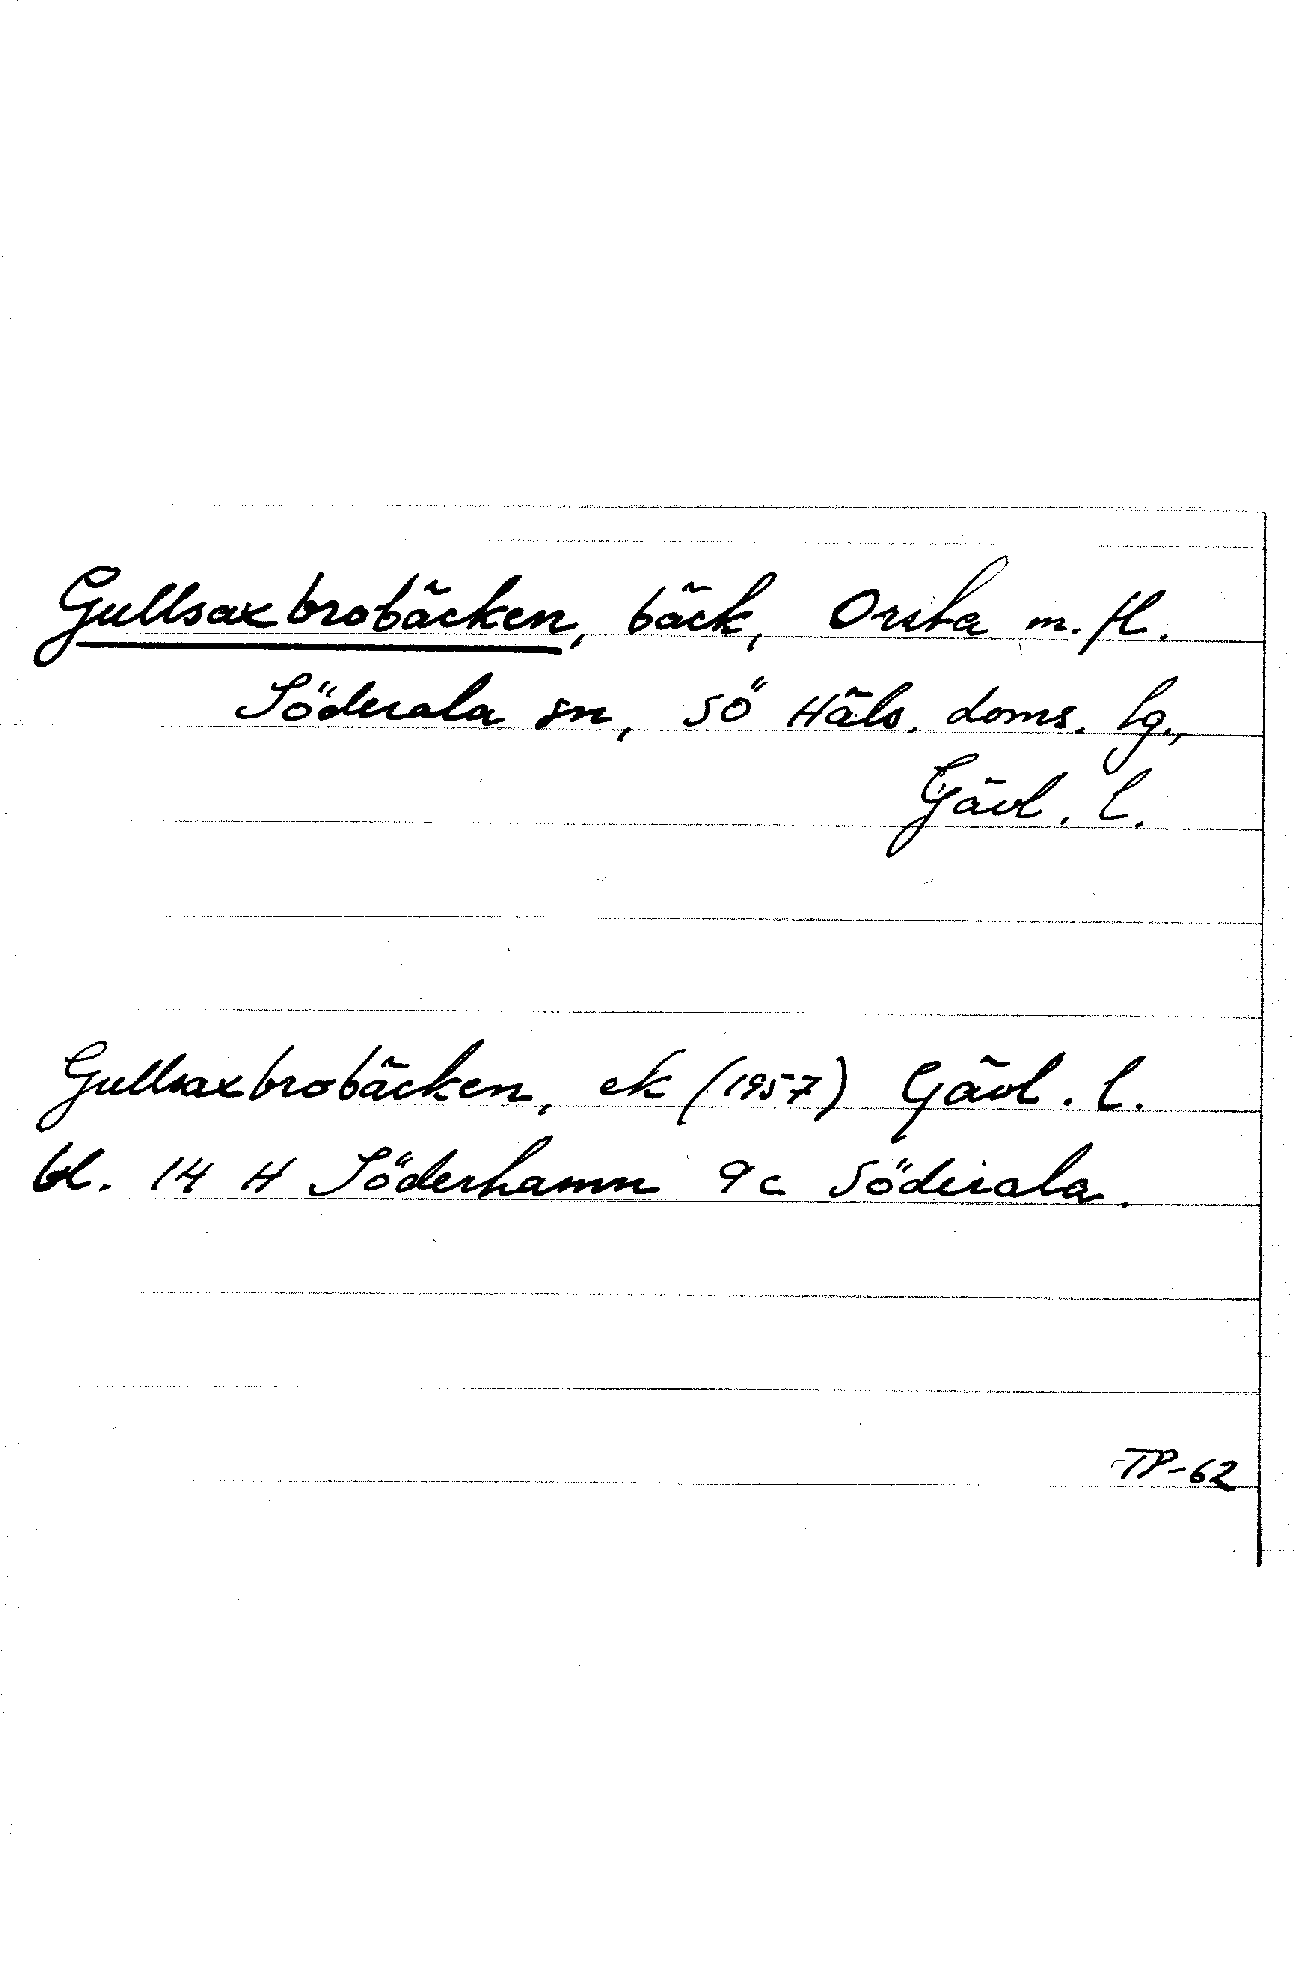 Gullsaxbrobäcken, bäck, Orsta m. fl.
Söderala sn, SÖ Häls. doms. lg.,
Gävl. l.
Gullsaxbrobäcken, ek (1957) Gävl. l.
bl. 14 H Söderhamn 9c Söderala.
TP-62